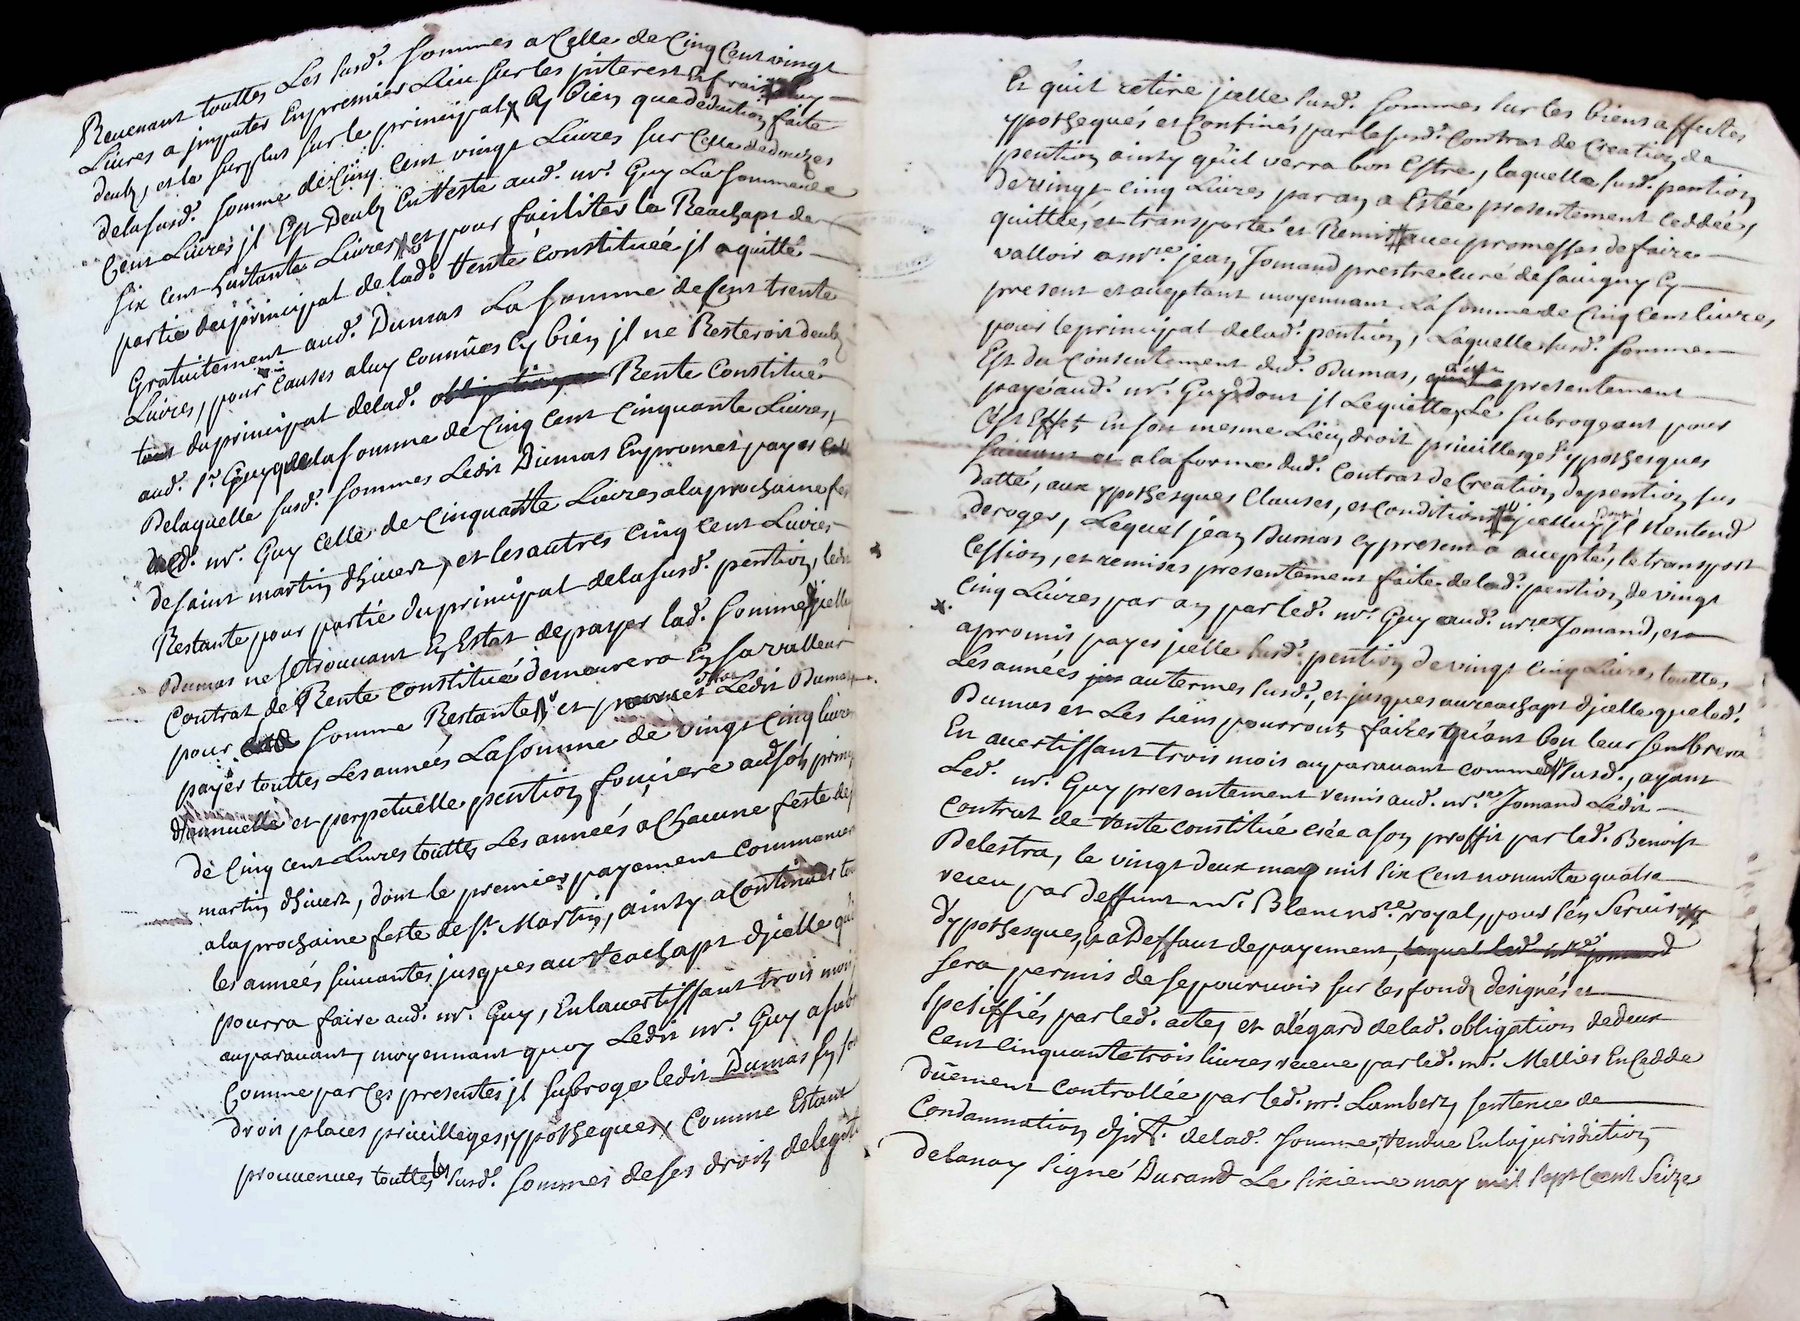 Revenant touttes Les susd. sommes a Celle de Cinq Cent vingt
Livres a jmputer En premier Lieu sur les jnterest & frais
deubz, et le surplus sur le principal, Cy bien que deduction faite
de la susd. somme de Cinq Cent vingt Livres sur Celle de douzes
Cent Livres jl Est deub En Reste aud. mr. Guy La somme de
six Cent huitante Livres, et pour faciliter le Reachapt de
partie du principal de lad. Rente Constituéé jl a quitté
Gratuitement aud. Dumas La somme de Cent trente
Livres, pour Causes a luy Connües Cy bien jl ne Resteroit deub
du principal de lad. Rente Constituéé
aud. sr. Guy que la somme de Cinq Cent Cinquante Livres,
De laquelle susd. sommes Ledit Dumas En promet payer
aud. mr. Guy Celle de Cinquante Livres a la prochaine fes
de saint martin dhivert, et les autres Cinq Cent Livres
Restante pour partie du principal de la susd. pention, ledit
Dumas ne se trouvant En Estat de payer lad. somme jcelluy
Contrat de Rente Constitué demeurera En sa valleur
pour somme Restante, et Ledit Dumas
payer touttes Les annéés La somme de vingt Cinq livre
d'annuelle et perpetuelle pention fonciere aud. son princ
de Cinq Cent Livres touttes Les annéés a Chacune feste de
martin dhivert, dont le premier payement Commancera
a la prochaine feste de st. Martin, ainsy a Continuer to
les annéés suivantes jusques au reachapt djcelle qu'i
pourra faire aud. mr. Guy, En l'avertissant trois mois
auparavant, moyennant quoy Ledit mr. Guy a sub
Comme par Ces presentes jl subroge ledit Dumas En so
droit places privilleges, ypotheques, Comme Estant
prouvenues touttes les susd. sommes de ses droitz de legit
Et qu'il retire jcelle susd. sommes sur les biens affectés
ypothequés et Confinés par le susd. Contrat de Creation de
pention ainsy qu'il verra bon Estre, laquelle susd. pention
de vingt Cinq Livres par an a Estéé presentement Ceddéé,
quittéé, et transporté et Remis avec promesses de faire
valloir a mre. jean Jomand prestre curé de savigny Cy
present et aceptant moyennant La somme de Cinq Cent livres
pour le principal de lad. pention, Laquelle susd. somme
Est du Consentement dud. Dumas, presentement
payé aud. mr. Guy, dont jl Le quitte, Le subrogeant pour
Cést Effet En son mesme Lieu, droit privilleges ypotheques
suivant et a la forme dud. Contrat de Creation de pention sus
datté, aux ypotheques Clauses, et Conditions jcelluy jl n'entend
deroger, Lequel jean Dumas cy present a accepté, le transport
Cession, et remises presentement faite de lad. pention de vingt
Cinq Livres par an par led. mr. Guy aud. mre. Jomand, et a
promis payer jcelle susd. pention de vingt Cinq Livres touttes
Les annéés aux termes susd., et jusques au reachapt djcelle que led.
Dumas et Les siens pourront faires quánt bon leur semblera
En avertissant trois mois auparavant comme susd., ayant
Led. mr. Guy presentement remis aud. mre. Jomand Ledit
Contrat de Rente Constitué créé a son proffit par led. Benoist
Delestra, le vingt deux may mil six Cent nonante quatre
receu par deffunt mr. Blanc nre. royal, pour s'en servir
d'ypotheques, Et a Deffaut de payement,
sera permis de se pourvoir sur les fondz designés et
speciffiés par led. actes et a l'égard de lad. obligation de deux
Cent Cinquante trois livres receue par led. mr. Mellier
düement Controlléé par led. mr. Lambert, sentence de
Condamnation de lad. somme, rendue En la jurisdiction
de Lanay signé Durand Le sixieme may mil sept Cent seize